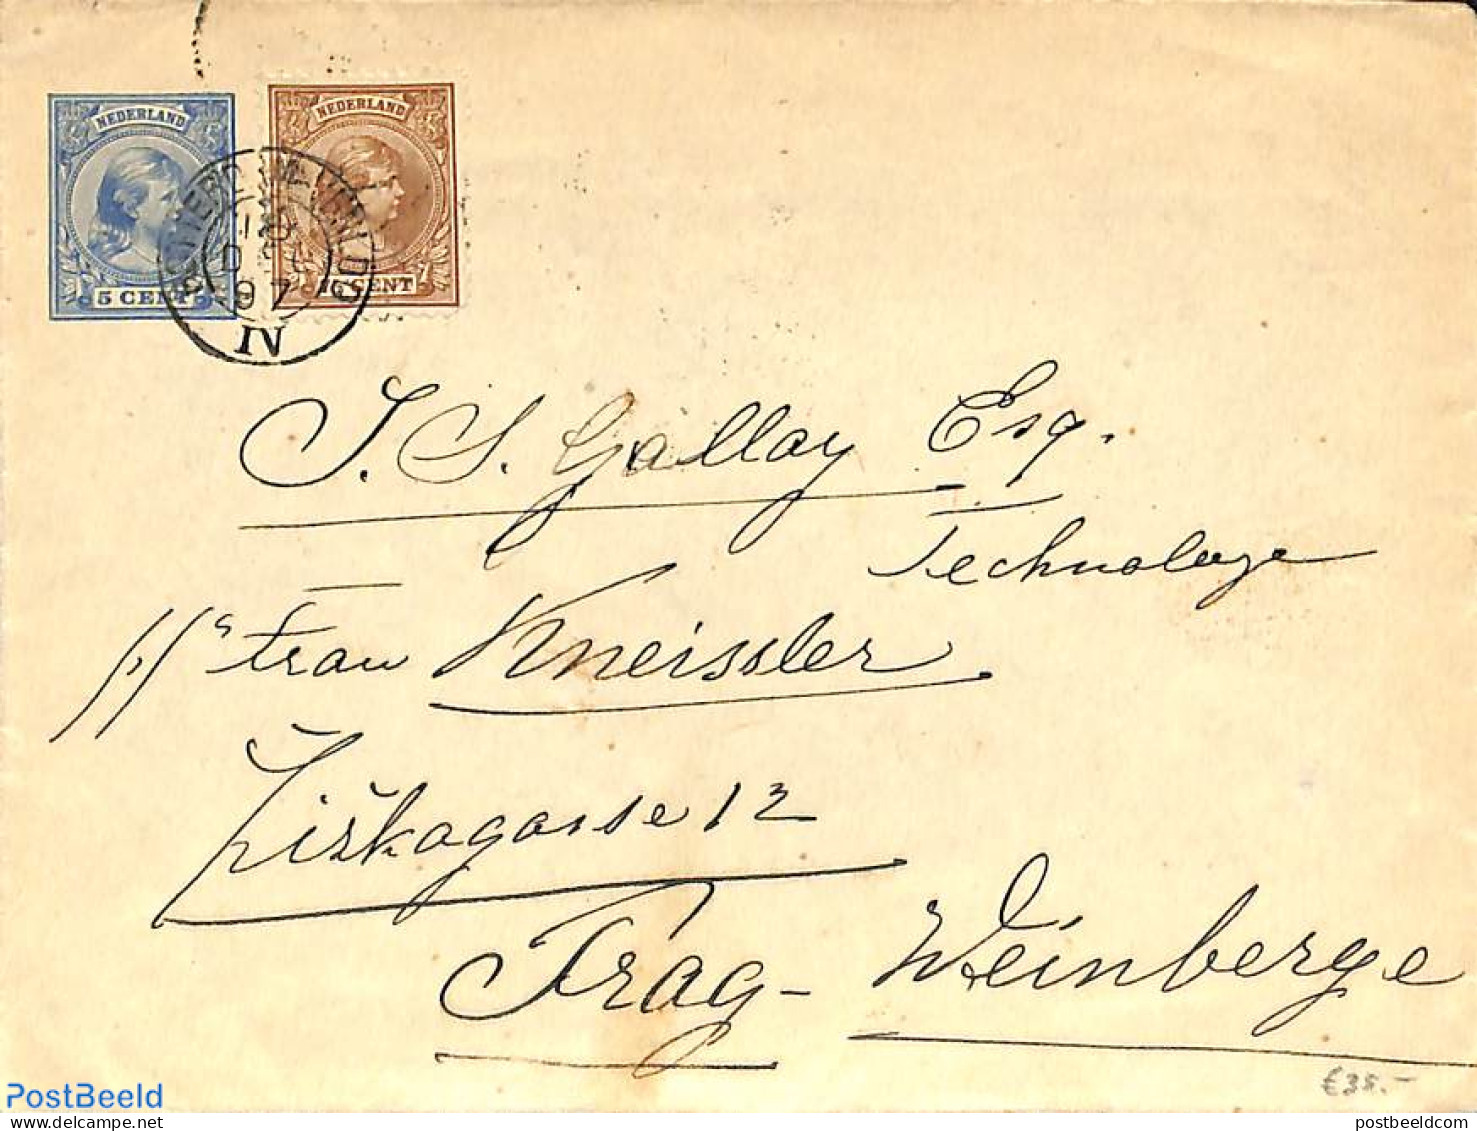 NEDERLAND
5 CENT
NEDERLAND
CENT
97
IV
J. S. Gallay Esq.
Technologe
Frau Kneissler
Žižkagasse 12
Prag - Weinberge
€35.-
PostBeeld
postbeeldcom postbeeldcom